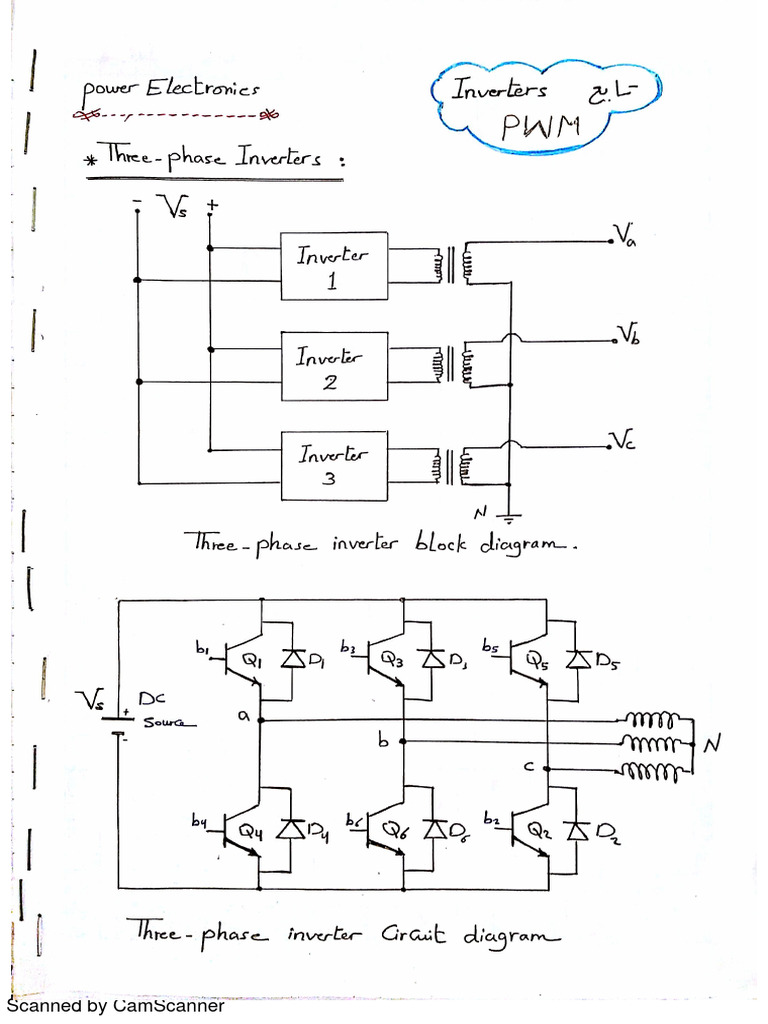 power Electronics
Inverters ج.L
PWM
* Three-phase Inverters :
- Vs +
Va
Inverter
1
Vb
Inverter
2
Vc
Inverter
3
N
Three-phase inverter block diagram.
b1 Q1 D1 b3 Q3 D3 b5 Q5 D5
Vs + DC
- Source
a
b
N
c
b4 Q4 D4 b6 Q6 D6 b2 Q2 D2
Three-phase inverter Circuit diagram
Scanned by CamScanner